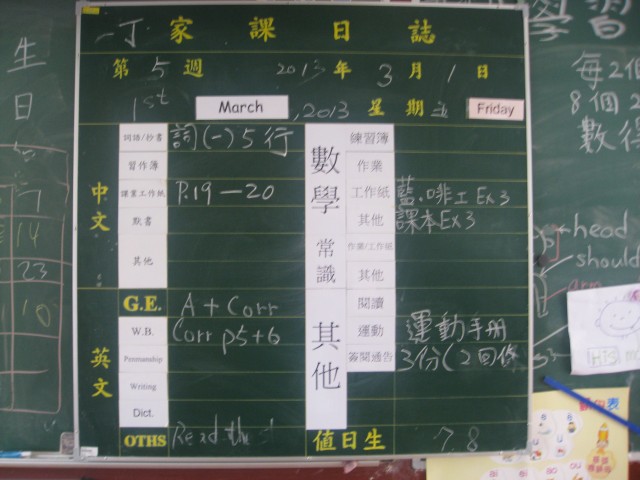 一丁 家課日誌
第 5 週 2013 年 3 月 1 日
1st March, 2013 星期五 Friday
中文
詞語/抄書 詞(一)5行
習作簿
課業工作紙 P.19—20
默書
其他
英文
G.E. A + Corr
W.B. Corr p5+6
Penmanship
Writing
Dict.
OTHS Read the
數學
練習簿
作業
工作紙 藍.啡工Ex3
其他 課本Ex3
常識
作業/工作紙
其他
其他
閱讀
運動 運動手冊
簽閱通告 3份(2回條
值日生 7.8
生日
14
23
10
學習
每2個
8個
數
head
should
arm